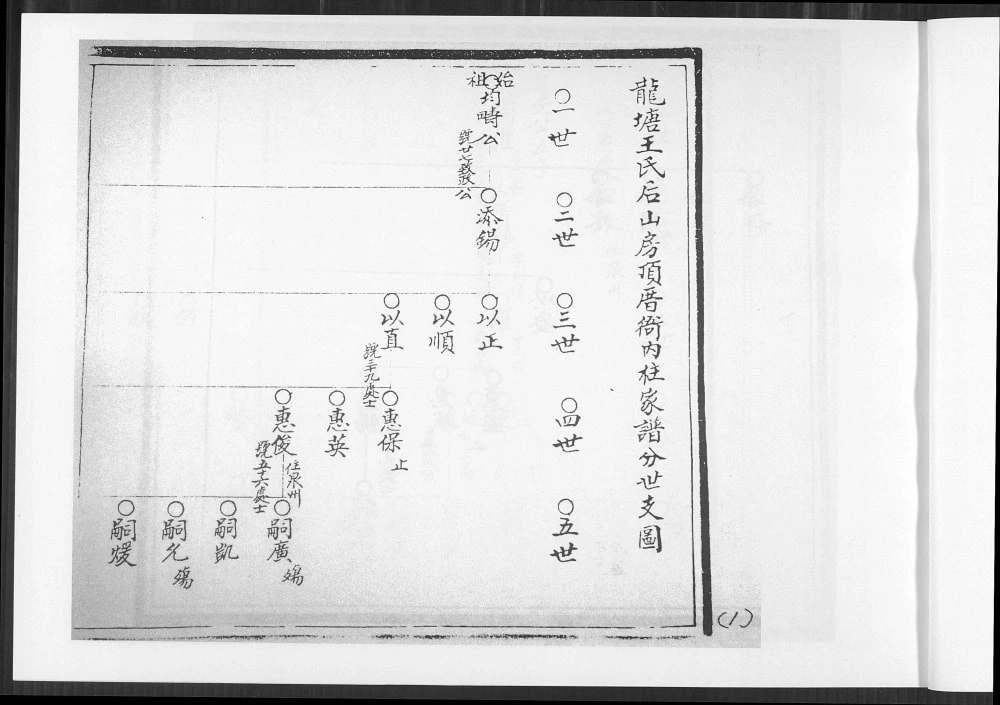 龍塘王氏后山房頂厝衙內柱家譜分世支圖
○一世
○二世
○三世
○四世
○五世
始祖
○均疇公
號廿七致政公
○添錫
○以正
○以順
○以直
號三十九處士
○惠保
止
○惠英
○惠俊
住泉州
號五十六處士
○嗣廣
殤
○嗣凱
○嗣允
殤
○嗣煖
(1)